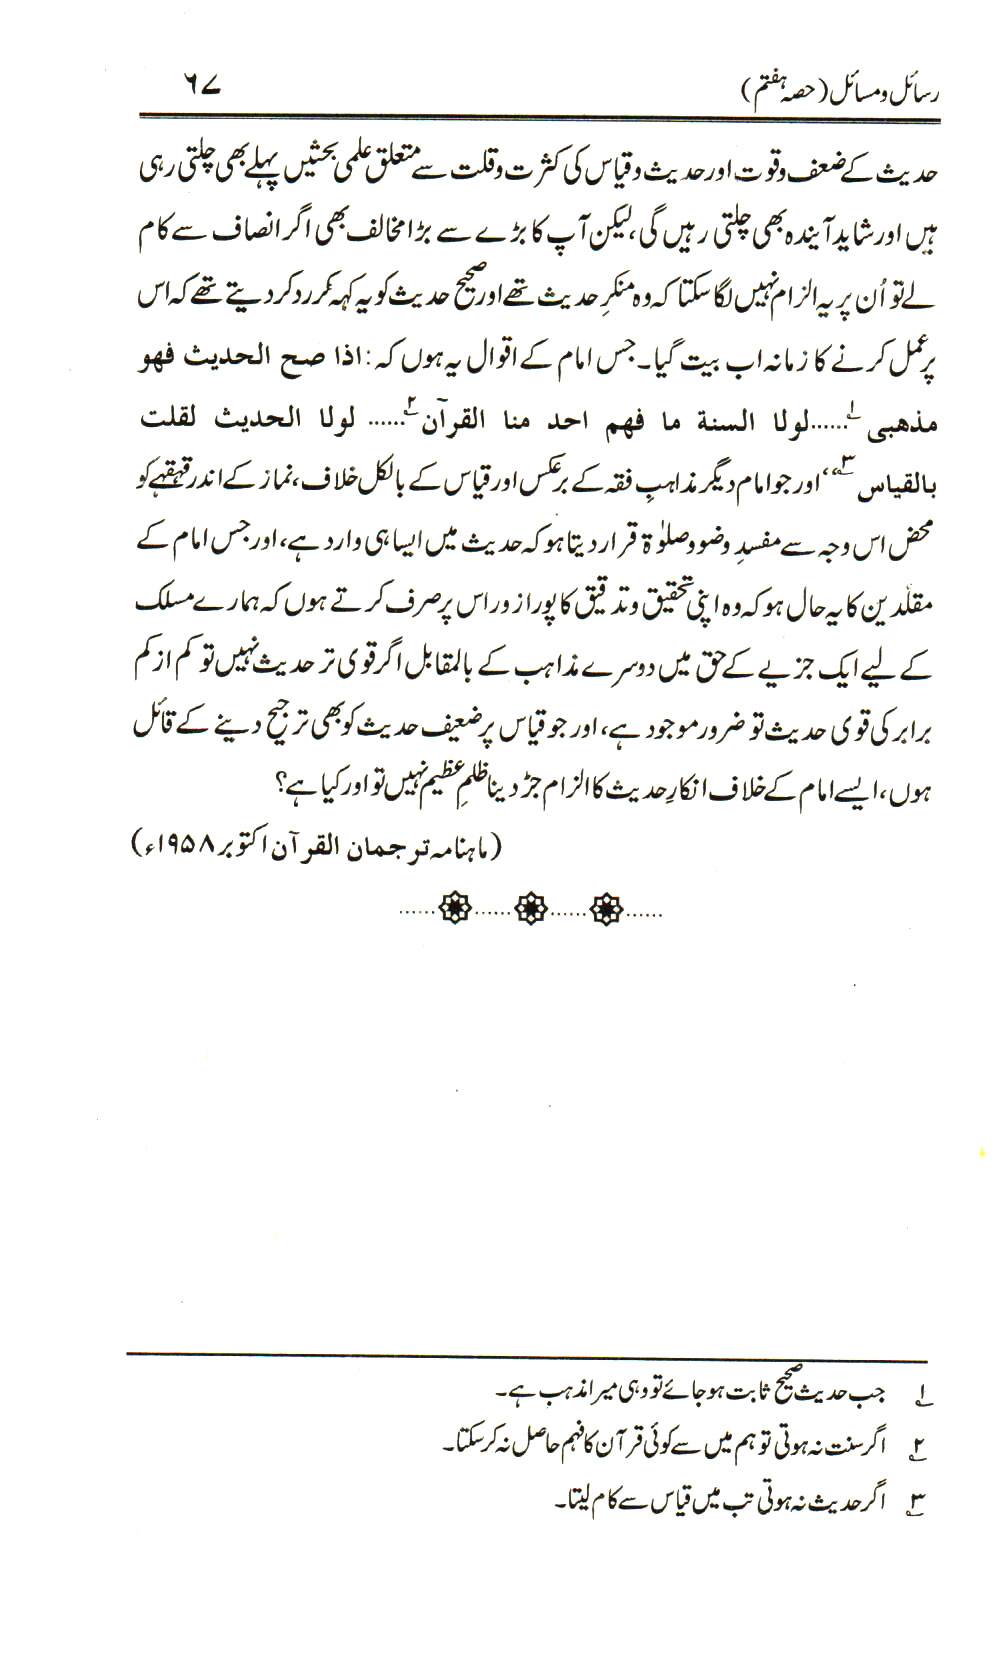 رسائل و مسائل (حصہ ہفتم) ۶۷
حدیث کے ضعف و قوت اور حدیث و قیاس کی کثرت و قلت سے متعلق علمی بحثیں پہلے بھی چلتی رہی
ہیں اور شاید آیندہ بھی چلتی رہیں گی، لیکن آپ کا بڑے سے بڑا مخالف بھی اگر انصاف سے کام
لے تو اُن پر یہ الزام نہیں لگا سکتا کہ وہ منکرِ حدیث تھے اور صحیح حدیث کو یہ کہہ کر رد کر دیتے تھے کہ اس
پر عمل کرنے کا زمانہ اب بیت گیا۔ جس امام کے اقوال یہ ہوں کہ: اذا صح الحدیث فھو
مذھبی ۱......لولا السنة ما فھم احد منا القرآن ۲...... لولا الحدیث لقلت
بالقیاس ۳‘‘ اور جو امام دیگر مذاہبِ فقہ کے برعکس اور قیاس کے بالکل خلاف، نماز کے اندر قہقہے کو
محض اس وجہ سے مفسدِ وضو و صلوٰۃ قرار دیتا ہو کہ حدیث میں ایسا ہی وارد ہے، اور جس امام کے
مقلدین کا یہ حال ہو کہ وہ اپنی تحقیق و تدقیق کا پورا زور اس پر صرف کرتے ہوں کہ ہمارے مسلک
کے لیے ایک جزیے کے حق میں دوسرے مذاہب کے بالمقابل اگر قوی تر حدیث نہیں تو کم از کم
برابر کی قوی حدیث تو ضرور موجود ہے، اور جو قیاس پر ضعیف حدیث کو بھی ترجیح دینے کے قائل
ہوں، ایسے امام کے خلاف انکارِ حدیث کا الزام جڑ دینا ظلمِ عظیم نہیں تو اور کیا ہے؟
(ماہنامہ ترجمان القرآن اکتوبر ۱۹۵۸ء)
۱ جب حدیث صحیح ثابت ہو جائے تو وہی میرا مذہب ہے۔
۲ اگر سنت نہ ہوتی تو ہم میں سے کوئی قرآن کا فہم حاصل نہ کر سکتا۔
۳ اگر حدیث نہ ہوتی تب میں قیاس سے کام لیتا۔